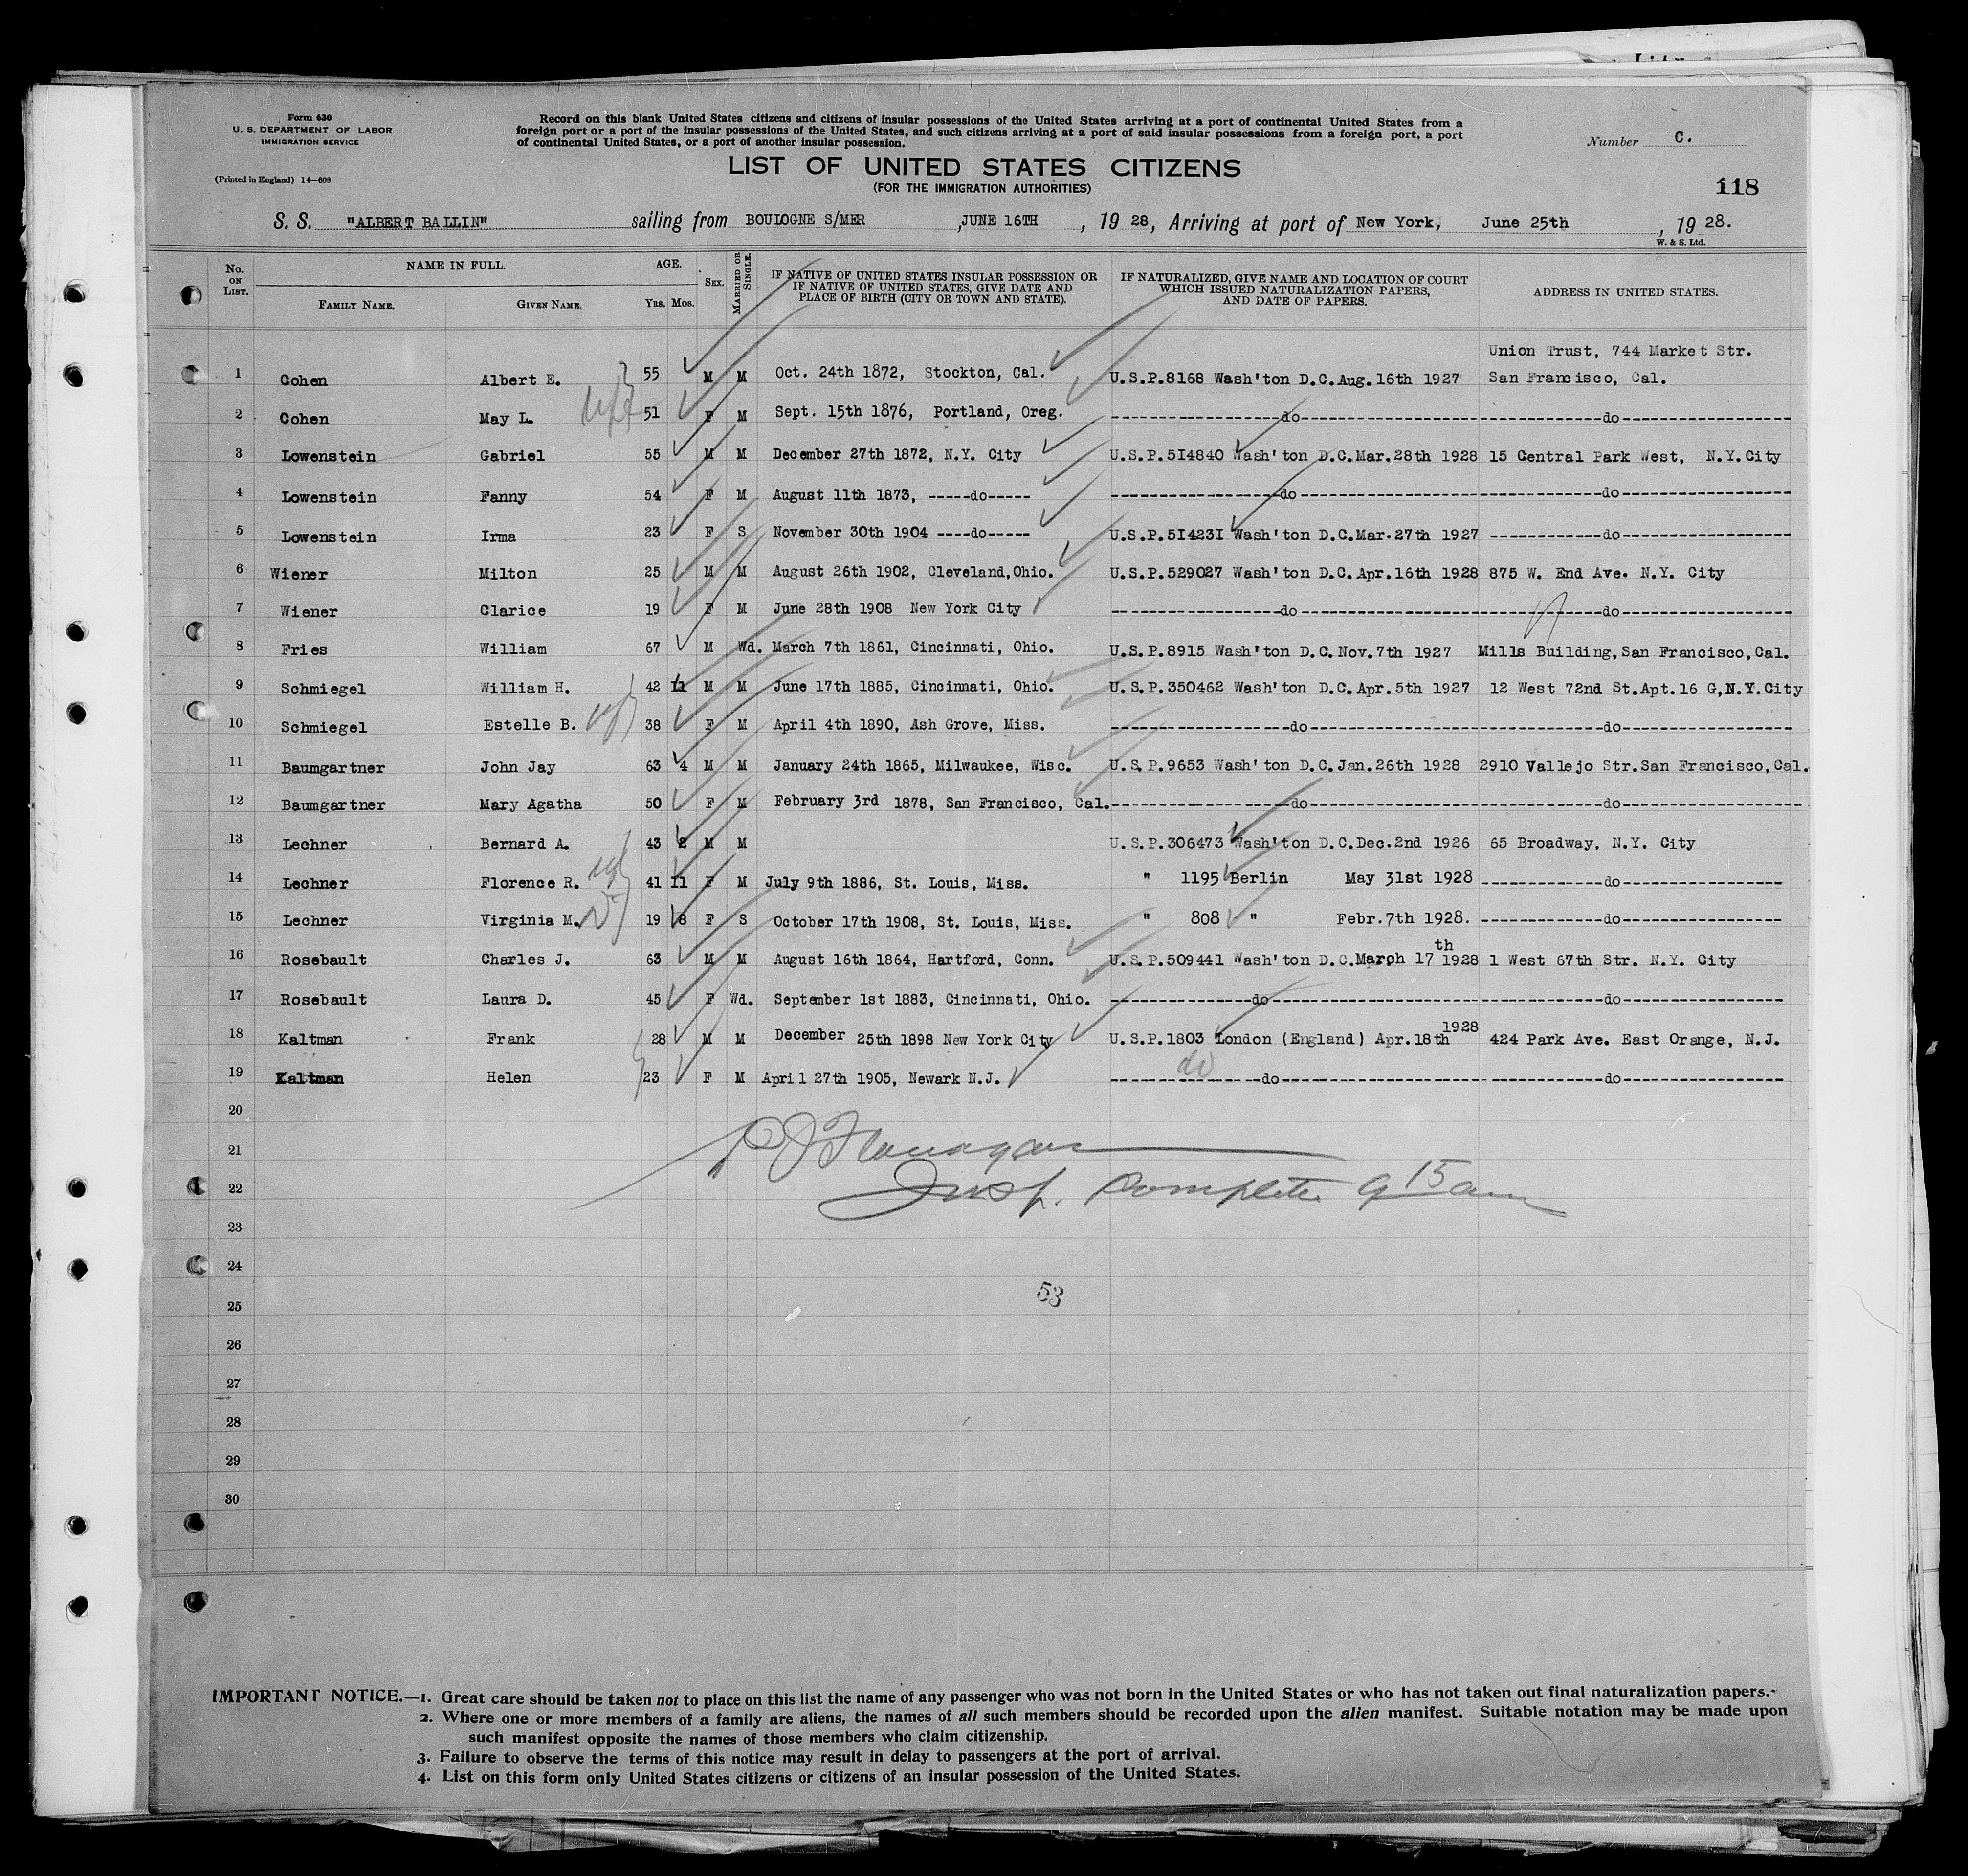 Form 630
U. S. DEPARTMENT OF LABOR
IMMIGRATION SERVICE
(Printed in England) 14—608
Record on this blank United States citizens and citizens of insular possessions of the United States arriving at a port of continental United States from a
foreign port or a port of the insular possessions of the United States, and such citizens arriving at a port of said insular possessions from a foreign port, a port
of continental United States, or a port of another insular possession.
Number C.
LIST OF UNITED STATES CITIZENS
(FOR THE IMMIGRATION AUTHORITIES)
118
S. S. "ALBERT BALLIN" sailing from BOULOGNE S/MER ,JUNE 16TH , 19 28, Arriving at port of New York, June 25th , 19 28.
W. & S. Ltd.
No. ON LIST. NAME IN FULL. AGE. SEX. MARRIED OR SINGLE. IF NATIVE OF UNITED STATES INSULAR POSSESSION OR IF NATIVE OF UNITED STATES, GIVE DATE AND PLACE OF BIRTH (CITY OR TOWN AND STATE). IF NATURALIZED, GIVE NAME AND LOCATION OF COURT WHICH ISSUED NATURALIZATION PAPERS, AND DATE OF PAPERS. ADDRESS IN UNITED STATES.
FAMILY NAME. GIVEN NAME. YRS. MOS.
Union Trust, 744 Market Str.
1 Cohen Albert E. 55 M M Oct. 24th 1872, Stockton, Cal. U.S.P.8168 Wash'ton D.C.Aug.16th 1927 San Francisco, Cal.
2 Cohen May L. 51 F M Sept. 15th 1876, Portland, Oreg. ----do---- ----do----
3 Lowenstein Gabriel 55 M M December 27th 1872, N.Y. City U.S.P.5I4840 Wash'ton D.C.Mar.28th 1928 15 Central Park West, N.Y.City
4 Lowenstein Fanny 54 F M August 11th 1873, -----do----- ----do---- ----do----
5 Lowenstein Irma 23 F S November 30th 1904 ----do----- U.S.P.5I423I Wash'ton D.C.Mar.27th 1927 ----do----
6 Wiener Milton 25 M M August 26th 1902, Cleveland,Ohio. U.S.P.529027 Wash'ton D.C.Apr.16th 1928 875 W. End Ave. N.Y. City
7 Wiener Clarice 19 F M June 28th 1908 New York City ----do---- ----do----
8 Fries William 67 M Wd. March 7th 1861, Cincinnati, Ohio. U.S.P.8915 Wash'ton D.C.Nov.7th 1927 Mills Building,San Francisco,Cal.
9 Schmiegel William H. 42 11 M M June 17th 1885, Cincinnati, Ohio. U.S.P.350462 Wash'ton D.C.Apr.5th 1927 12 West 72nd St.Apt.16 G,N.Y.City
10 Schmiegel Estelle B. 38 F M April 4th 1890, Ash Grove, Miss. ----do---- ----do----
11 Baumgartner John Jay 63 4 M M January 24th 1865, Milwaukee, Wisc. U.S.P.9653 Wash'ton D.C.Jan.26th 1928 2910 Vallejo Str.San Francisco,Cal.
12 Baumgartner Mary Agatha 50 F M February 3rd 1878, San Francisco, Cal. ----do---- ----do----
13 Lechner Bernard A. 43 2 M M U.S.P.306473 Wash'ton D.C.Dec.2nd 1926 65 Broadway, N.Y. City
14 Lechner Florence R. 41 11 F M July 9th 1886, St. Louis, Miss. " 1195 Berlin May 31st 1928 ----do----
15 Lechner Virginia M. 19 8 F S October 17th 1908, St. Louis, Miss. " 808 " Febr.7th 1928. ----do----
16 Rosebault Charles J. 63 M M August 16th 1864, Hartford, Conn. U.S.P.509441 Wash'ton D.C.March 17th 1928 1 West 67th Str. N.Y. City
17 Rosebault Laura D. 45 F Wd. September 1st 1883, Cincinnati, Ohio. ----do---- ----do----
18 Kaltman Frank 28 M M December 25th 1898 New York City U.S.P.1803 London (England) Apr.18th 1928 424 Park Ave. East Orange, N.J.
19 Kaltman Helen 23 F M April 27th 1905, Newark N.J. do ----do---- ----do----
20
21 Flanagan
22 Insp. Complete 9 15 am
23
24
53
25
26
27
28
29
30
IMPORTANT NOTICE.—1. Great care should be taken not to place on this list the name of any passenger who was not born in the United States or who has not taken out final naturalization papers.
2. Where one or more members of a family are aliens, the names of all such members should be recorded upon the alien manifest. Suitable notation may be made upon
such manifest opposite the names of those members who claim citizenship.
3. Failure to observe the terms of this notice may result in delay to passengers at the port of arrival.
4. List on this form only United States citizens or citizens of an insular possession of the United States.